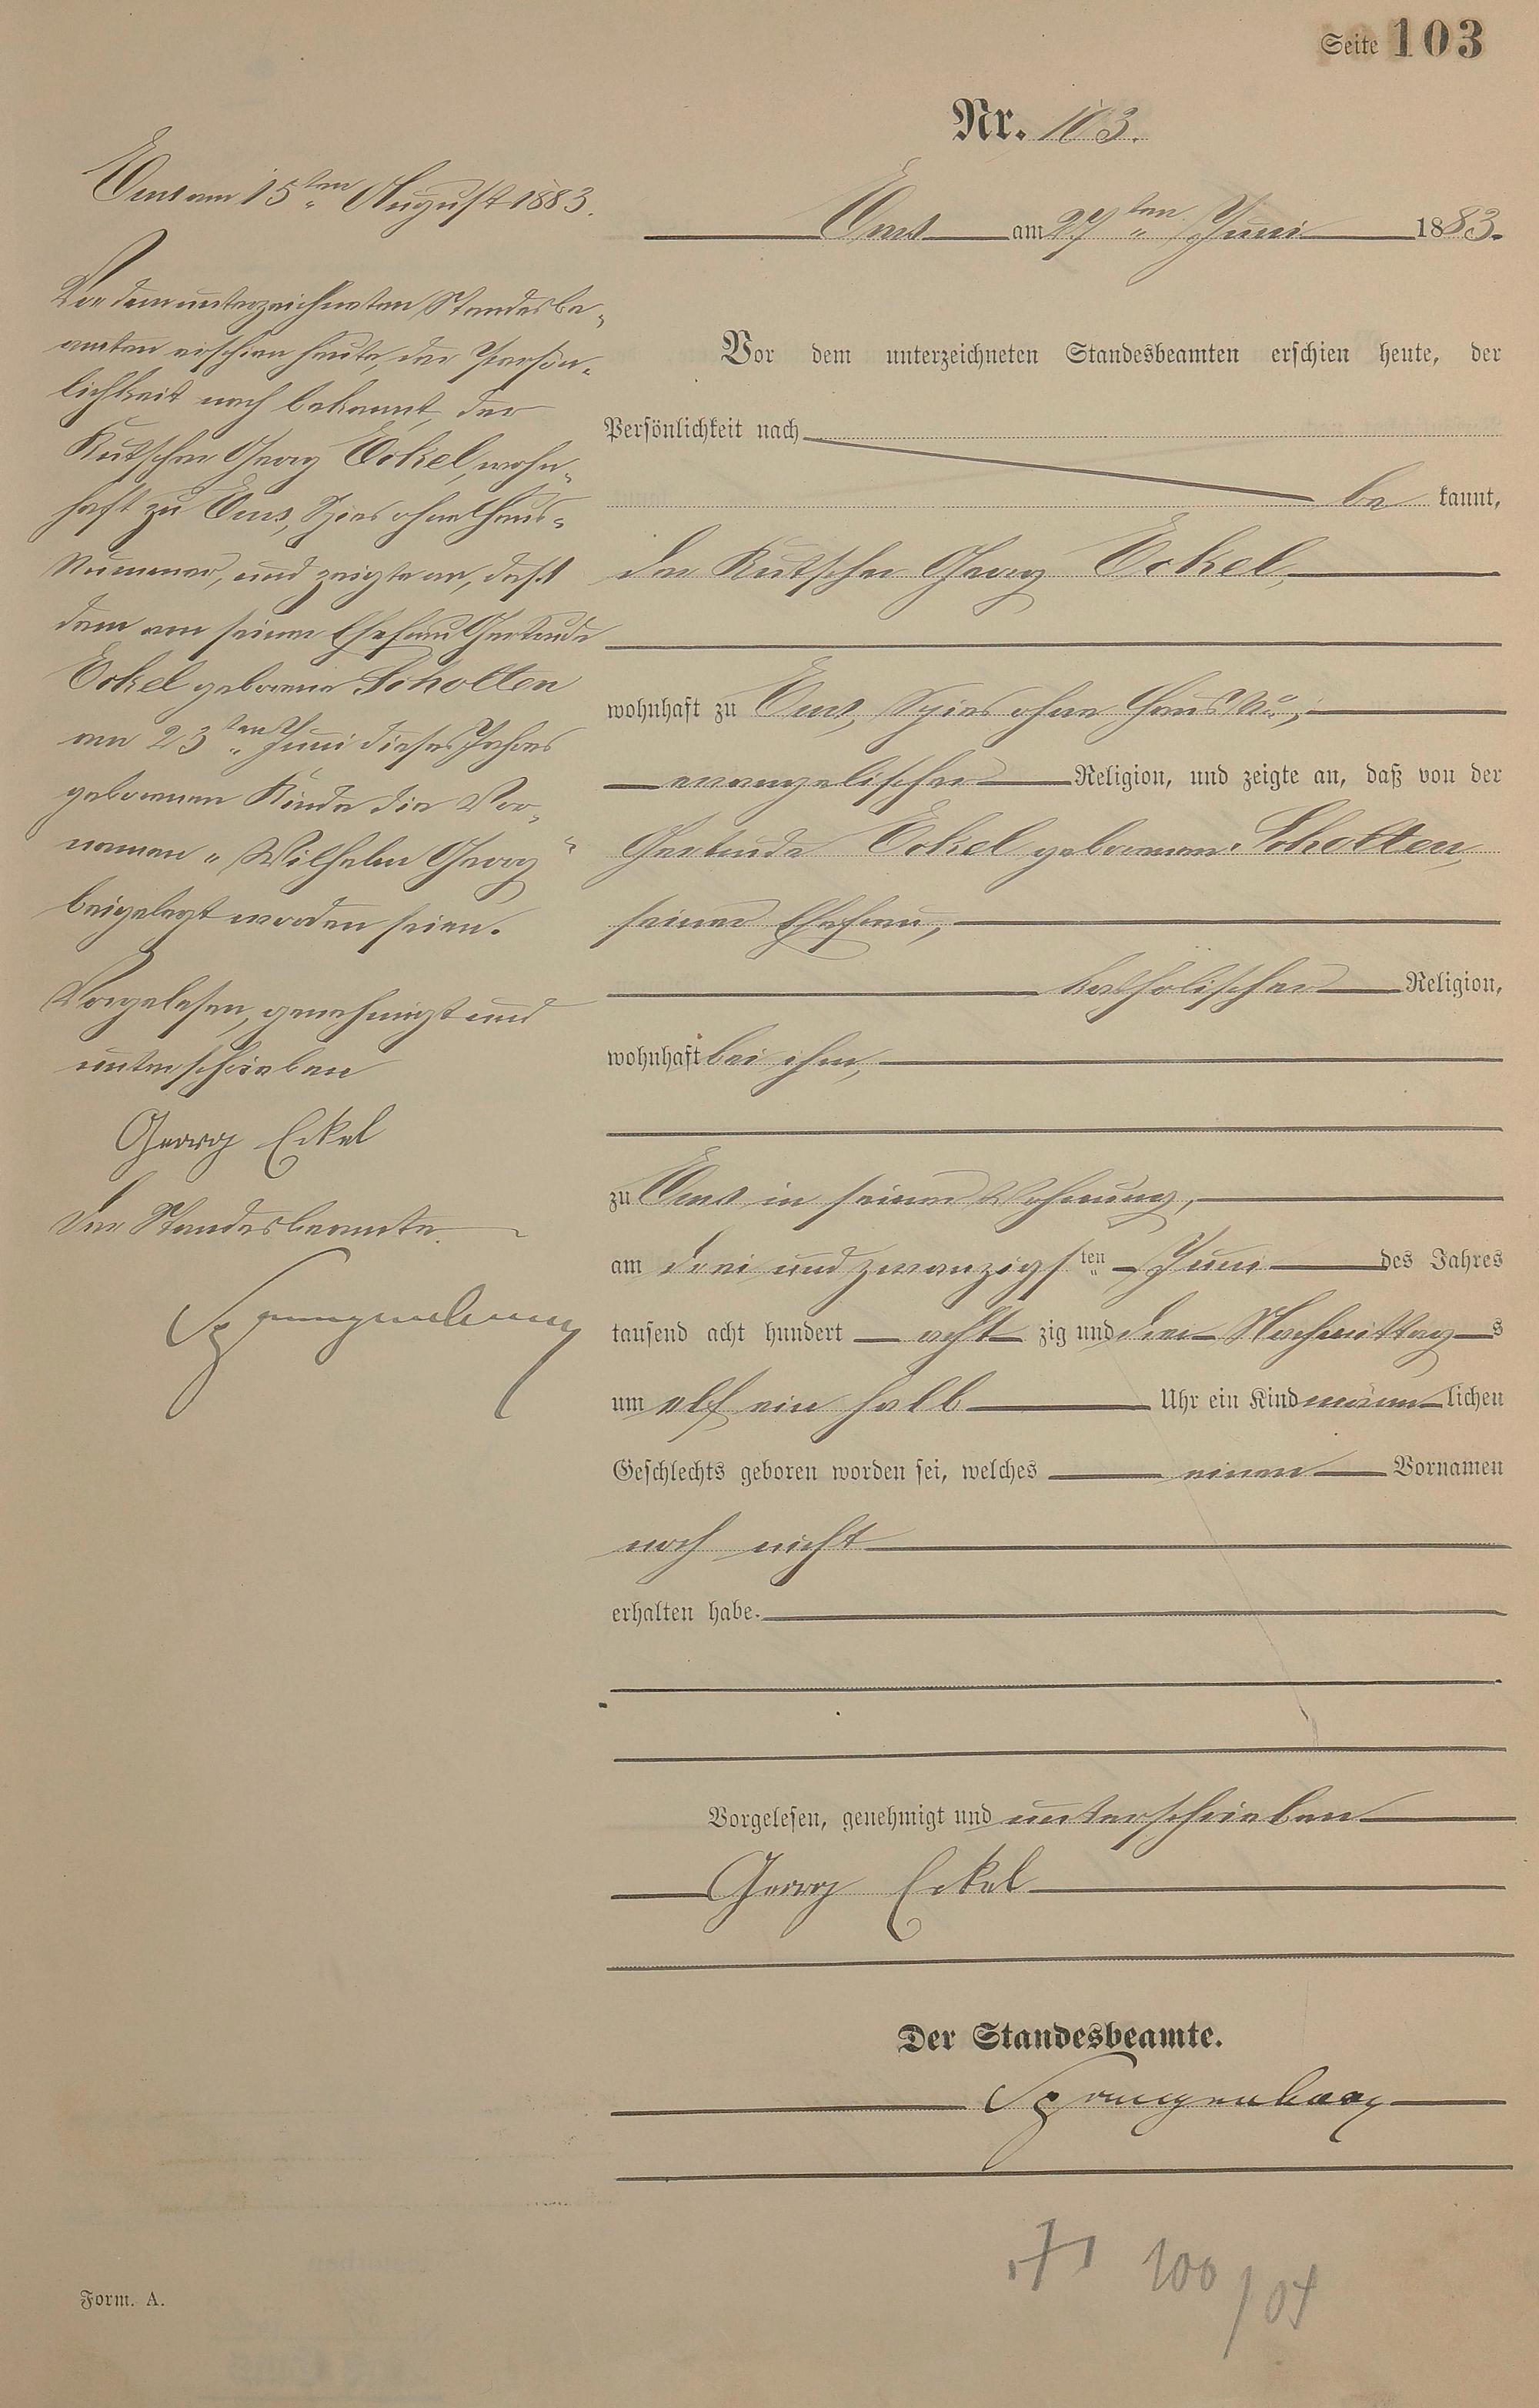 Seite 103
Nr. 103.
Ems am 27ten Juni 1883.
Vor dem unterzeichneten Standesbeamten erschien heute, der
Persönlichkeit nach
be kannt,
der Kutscher Georg Eckel,
wohnhaft zu Ems, Spies ohne Haus No,
evangelischer Religion, und zeigte an, daß von der
Gertrude Eckel geborenen Scholten,
seiner Ehefrau,
katholischer Religion,
wohnhaft bei ihm,
zu Ems in seiner Wohnung,
am drei und zwanzigsten Juni des Jahres
tausend acht hundert acht zig und drei Nachmittags
um elf ein halb Uhr ein Kind männlichen
Geschlechts geboren worden sei, welches einen Vornamen
noch nicht
erhalten habe.
Vorgelesen, genehmigt und unterschrieben
Georg Eckel
Der Standesbeamte.
Spangenberg
Ems am 15ten August 1883.
Vor dem unterzeichneten Standesbe-
amten erschien heute, der Persön-
lichkeit nach bekannt, der
Kutscher Georg Eckel, wohn-
haft zu Ems, Spies ohne Haus-
Nummer, und zeigte an, daß
dem von seiner Ehefrau Gertrude
Eckel geborene Scholten
am 23ten Juni dieses Jahres
geborenen Kinde die Vor-
namen „Wilhelm Georg“
beigelegt worden seien.
Vorgelesen, genehmigt und
unterschrieben
Georg Eckel
Der Standesbeamte.
Spangenberg
100/04
Form. A.